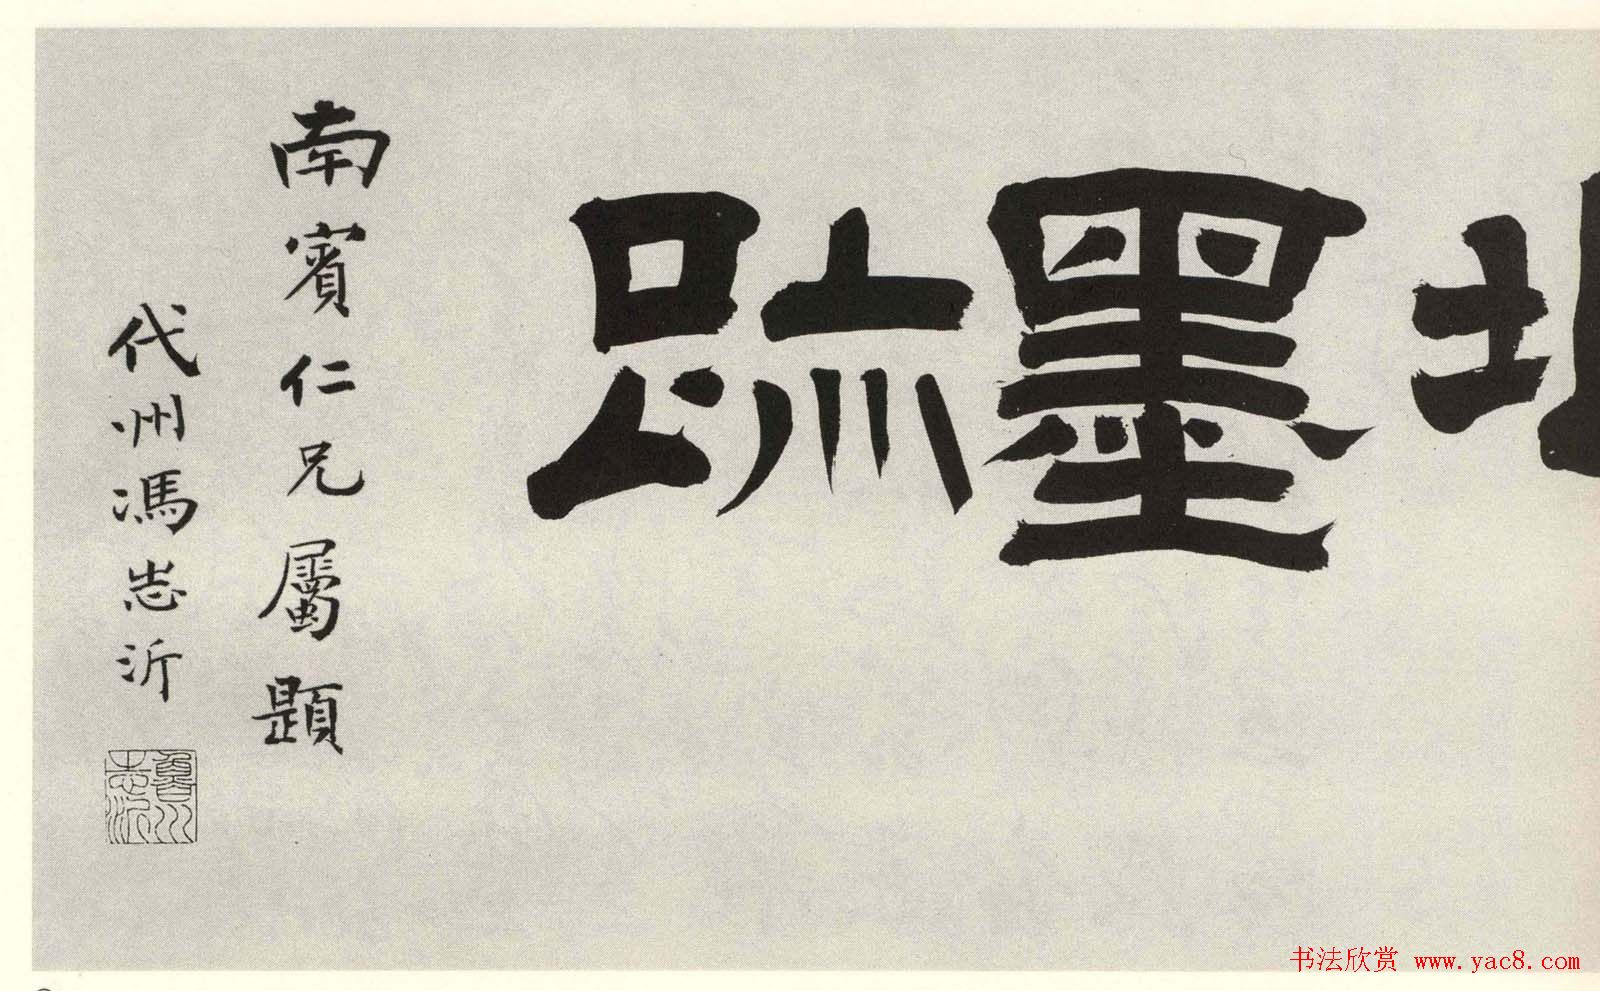 墨跡
南賓仁兄屬題
代州馮志沂
魯川
志沂
书法欣赏 www.yac8.com